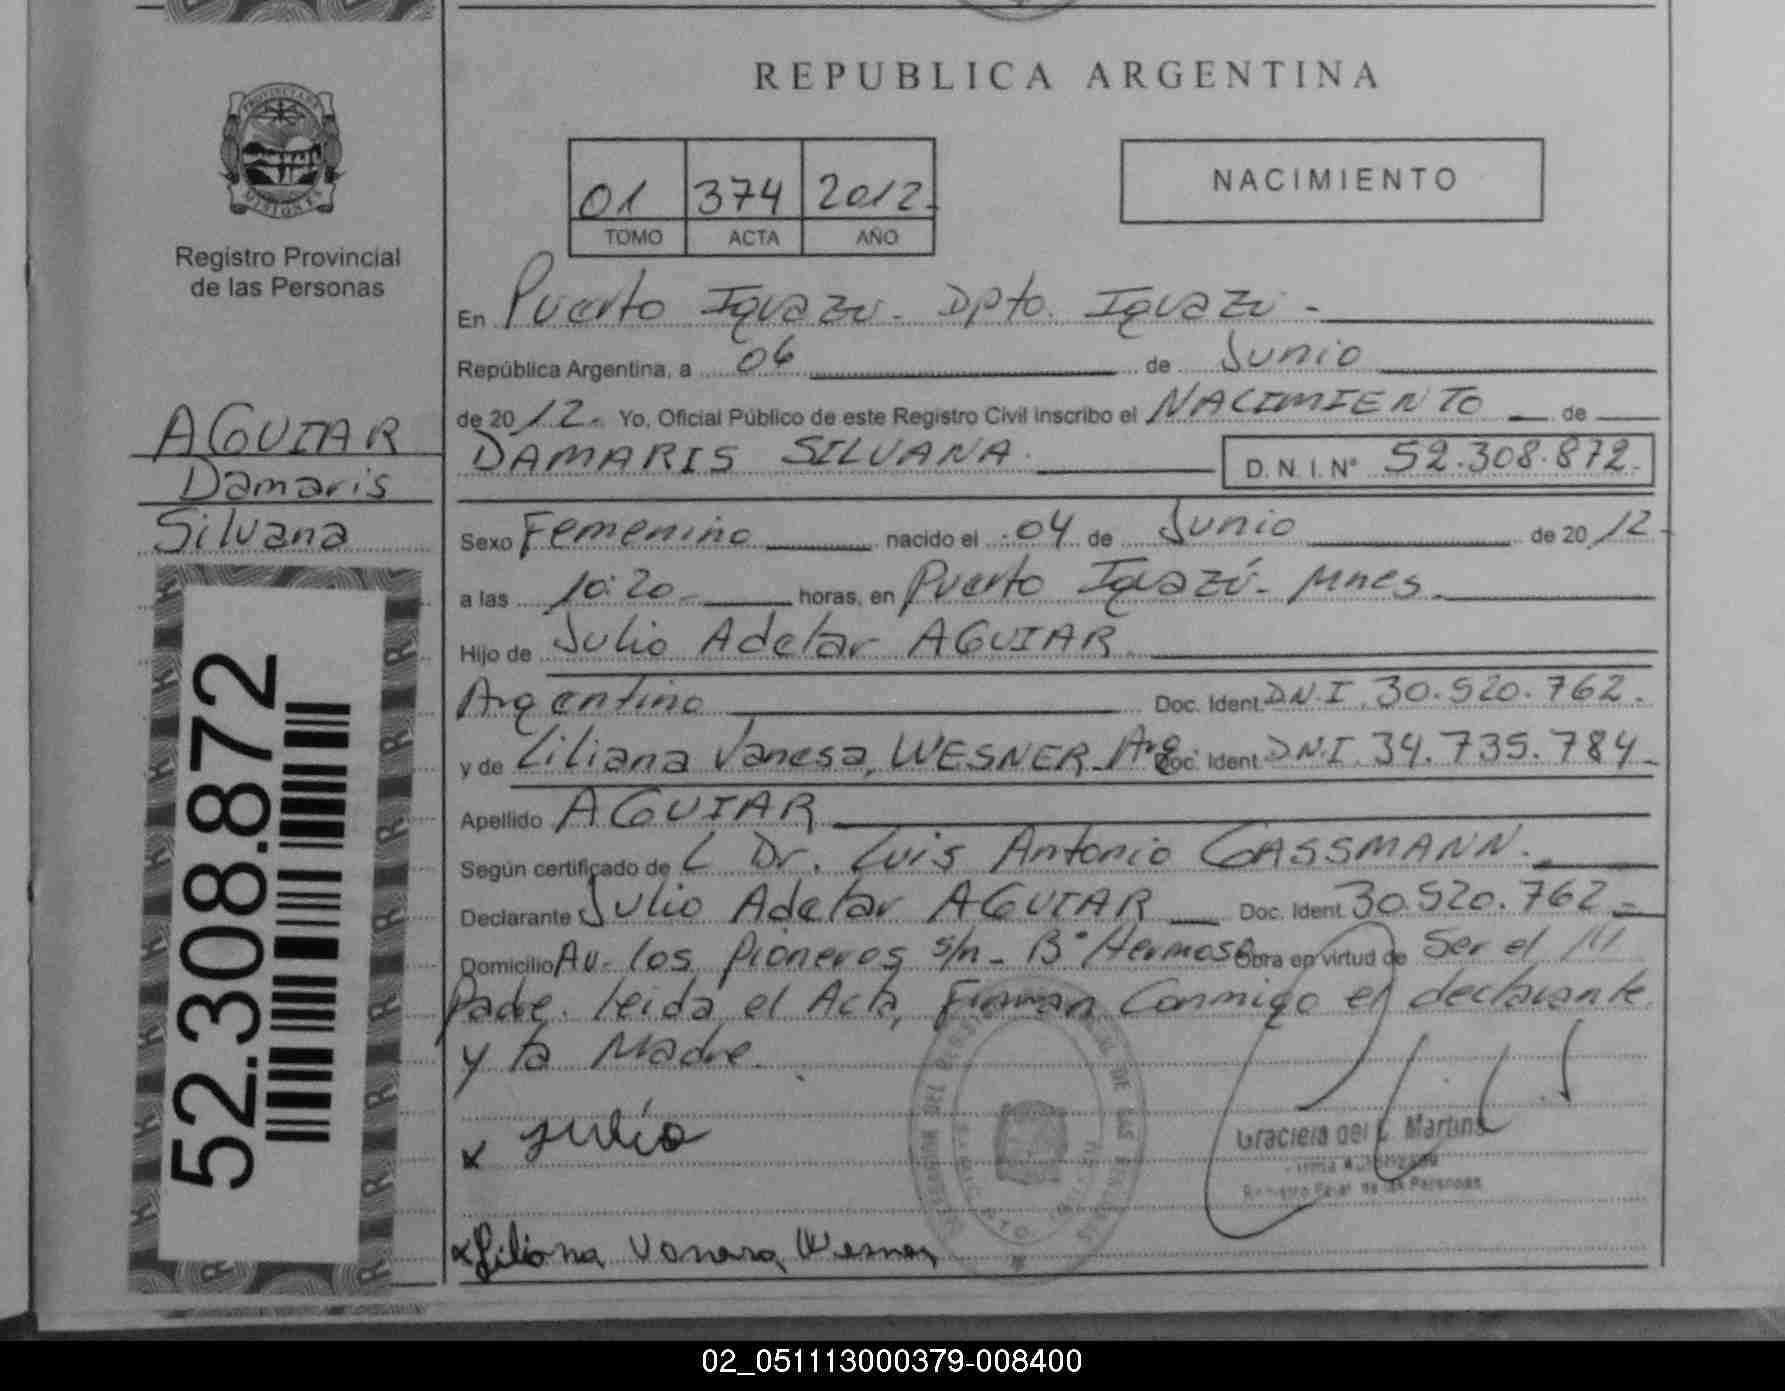 REPUBLICA ARGENTINA
PROVINCIA DE MISIONES
Registro Provincial
de las Personas
01 374 2012.
TOMO ACTA AÑO
NACIMIENTO
AGUIAR
Damaris
Silvana
52.308.872
En Puerto Iguazú. Dpto. Iguazú -
República Argentina, a 06 de Junio
de 2012. Yo, Oficial Público de este Registro Civil inscribo el NACIMIENTO de
DAMARIS SILVANA. D. N. I. N° 52.308.872.
Sexo Femenino nacido el 04 de Junio de 2012-
a las 10:20 horas, en Puerto Iguazú - Mnes.
Hijo de Julio Adelar AGUIAR.
Argentino Doc. Ident. D.N.I. 30.520.762.
y de Liliana Vanesa, WESNER. Arg Doc. Ident. D.N.I. 34.735.784-
Apellido AGUIAR
Según certificado de L Dr. Luis Antonio GASSMANN.
Declarante Julio Adelar AGUIAR Doc. Ident. 30.520.762-
Domicilio Av. los Pioneros s/n - B° Hermoso Obra en virtud de Ser el
Padre. leída el Acta, Firman Conmigo el declarante
y la Madre.
x Julio
Graciela del C. Martins
Firma Autorizada
Registro Pcial. de las Personas
x Liliana Vanesa Wesner
02_051113000379-008400